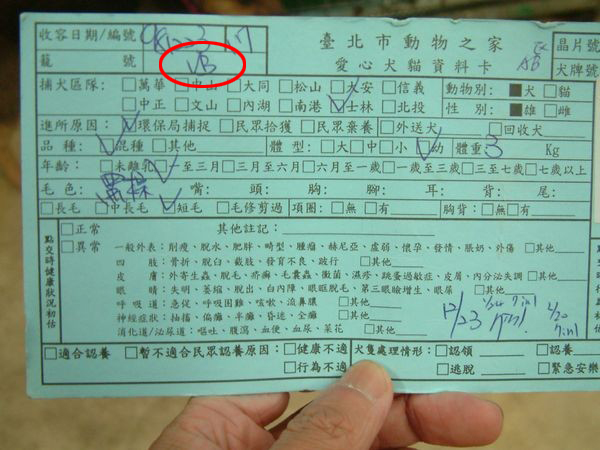 收容日期/編號 臺北市動物之家 晶片號
籠 號 愛心犬貓資料卡 犬牌號
捕犬區隊: □萬華 □中山 □大同 □松山 □大安 □信義 動物別: ■犬 □貓
□中正 □文山 □內湖 □南港 ☑士林 □北投 性 別: ■雄 □雌
進所原因: ☑環保局捕捉 □民眾拾獲 □民眾棄養 □外送犬 □回收犬
品 種: ☑混種 □其他 體 型: □大 □中 □小 ☑幼 體重: 3 Kg
年齡: □未離乳 ☑一至三月 □三月至六月 □六月至一歲 □一歲至三歲 □三至七歲 □七歲以上
毛 色: 嘴: 頭: 胸: 腳: 耳: 背: 尾:
□長毛 □中長毛 ☑短毛 □毛修剪過 項圈: □無 □有 胸背: □無 □有
點交時健康狀況初估
□正常 其他註記:
□異常 一般外表: 削瘦、脫水、肥胖、畸型、腫瘤、赫尼亞、虛弱、懷孕、發情、脹奶、外傷 □其他
四 肢: 骨折、脫臼、截肢、發育不良、跛行 □其他
皮 膚: 外寄生蟲、脫毛、疥癬、毛囊蟲、黴菌、濕疹、跳蚤過敏症、皮屑、內分泌失調 □其他
眼 睛: 失明、萎縮、脫出、白內障、眼眶脫毛、第三眼瞼增生、眼屎 □其他
呼 吸 道: 急促、呼吸困難、咳嗽、流鼻膿 □其他
神經症狀: 抽搐、偏癱、半癱、昏迷、全癱 □其他
消化道/泌尿道: 嘔吐、腹瀉、血便、血尿、菜花 □其他
12/23
□適合認養 □暫不適合民眾認養原因: □健康不適 犬隻處理情形: □認領 □認養
□行為不適 □逃脫 □緊急安樂